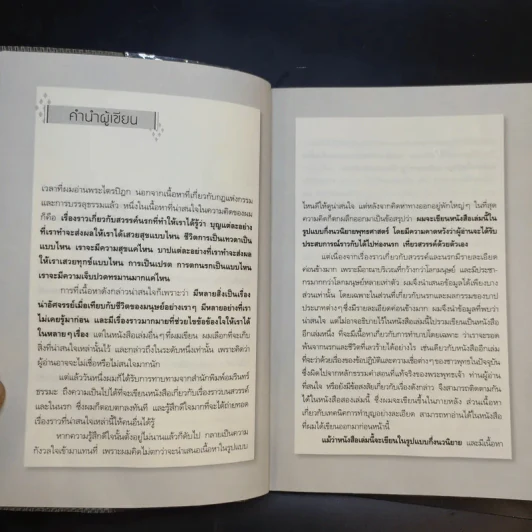 คำนำผู้เขียน
เวลาที่ผมอ่านพระไตรปิฎก นอกจากเนื้อหาที่เกี่ยวกับกฎแห่งกรรม
และการบรรลุธรรมแล้ว หนึ่งในเนื้อหาที่น่าสนใจในความคิดของผม
ก็คือ เรื่องราวเกี่ยวกับสวรรค์นรกที่ทำให้เราได้รู้ว่า บุญแต่ละอย่าง
ที่เราทำจะส่งผลให้เราได้เสวยสุขแบบไหน ชีวิตการเป็นเทวดาเป็น
แบบไหน เราจะมีความสุขแค่ไหน บาปแต่ละอย่างที่เราทำจะส่งผล
ให้เราเสวยทุกข์แบบไหน การเป็นเปรต การตกนรกเป็นแบบไหน
เราจะมีความเจ็บปวดทรมานมากแค่ไหน
การที่เนื้อหาดังกล่าวน่าสนใจก็เพราะว่า มีหลายสิ่งเป็นเรื่อง
น่าอัศจรรย์เมื่อเทียบกับชีวิตของมนุษย์อย่างเราๆ มีหลายอย่างที่เรา
ไม่เคยรู้มาก่อน และมีเรื่องราวมากมายที่ช่วยไขข้อข้องใจให้เราได้
ในหลายๆ เรื่อง แต่ในหนังสือเล่มอื่นๆ ที่ผมเขียน ผมเลือกที่จะเก็บ
สิ่งที่น่าสนใจเหล่านั้นไว้ และกล่าวถึงในระดับหนึ่งเท่านั้น เพราะคิดว่า
ผู้อ่านอาจจะไม่เชื่อหรือไม่สนใจมากนัก
แต่แล้ววันหนึ่งผมก็ได้รับการทาบทามจากสำนักพิมพ์อมรินทร์
ธรรมะ ถึงความเป็นไปได้ที่จะเขียนหนังสือเกี่ยวกับเรื่องราวบนสวรรค์
และในนรก ซึ่งผมก็ตอบตกลงทันที และรู้สึกดีใจมากที่จะได้ถ่ายทอด
เรื่องราวที่น่าสนใจเหล่านี้ให้คนอื่นได้รู้
หากความรู้สึกดีใจนั้นตั้งอยู่ไม่นานแล้วก็ดับไป กลายเป็นความ
กังวลใจเข้ามาแทนที่ เพราะผมคิดไม่ตกว่าจะนำเสนอเนื้อหาในรูปแบบ
ไหนดีให้ดูน่าสนใจ แต่หลังจากคิดหาทางออกอยู่พักใหญ่ๆ ในที่สุด
ความคิดก็ตกผลึกออกมาเป็นข้อสรุปว่า ผมจะเขียนหนังสือเล่มนี้ใน
รูปแบบกึ่งนวนิยายพุทธศาสตร์ โดยมีความคาดหวังว่าผู้อ่านจะได้รับ
ประสบการณ์ราวกับได้ไปท่องนรก เที่ยวสวรรค์ด้วยตัวเอง
แต่เนื่องจากเรื่องราวเกี่ยวกับสวรรค์และนรกมีรายละเอียด
ค่อนข้างมาก เพราะมีอาณาบริเวณที่กว้างกว่าโลกมนุษย์ และมีประชา-
กรมากกว่าโลกมนุษย์หลายเท่าตัว ผมจึงนำเสนอข้อมูลได้เพียงบาง
ส่วนเท่านั้น โดยเฉพาะในส่วนที่เกี่ยวกับนรกและผลกรรมของบาป
ประเภทต่างๆ ซึ่งมีรายละเอียดค่อนข้างมาก ผมจึงนำข้อมูลที่พบว่า
ที่จะว่าด้วยเรื่องของข้อปฏิบัติและความเชื่อต่างๆ ของชาวพุทธในปัจจุบัน
ซึ่งผิดไปจากหลักธรรมคำสอนที่แท้จริงของพระพุทธเจ้า ท่านผู้อ่าน
ที่สนใจ หรือยังมีข้อสงสัยเกี่ยวกับเรื่องดังกล่าว จึงสามารถติดตามกัน
ได้ในหนังสือสองเล่มนี้ ซึ่งผมจะเขียนขึ้นในภายหลัง ส่วนเนื้อหา
เกี่ยวกับเทคนิคการทำบุญอย่างละเอียด สามารถหาอ่านได้ในหนังสือ
ที่ผมได้เขียนออกมาก่อนหน้านี้
แม้ว่าหนังสือเล่มนี้จะเขียนในรูปแบบกึ่งนวนิยาย และมีเนื้อหา